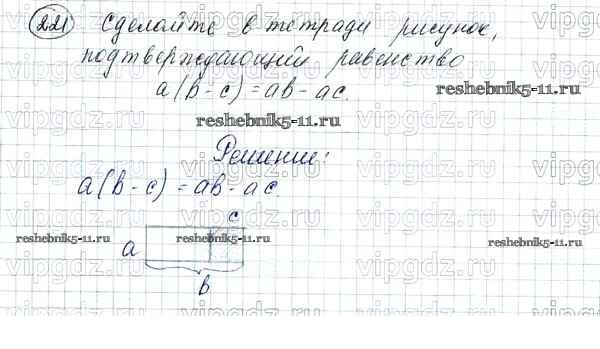 221 Сделайте в тетради рисунок,
подтверждающий равенство
a(b-c)=ab-ac.
reshebnik5-11.ru
Решение:
a(b-c)=ab-ac.
c
reshebnik5-11.ru
reshebnik5-11.ru
reshebnik5-11.ru
a
b
vipgdz.ru